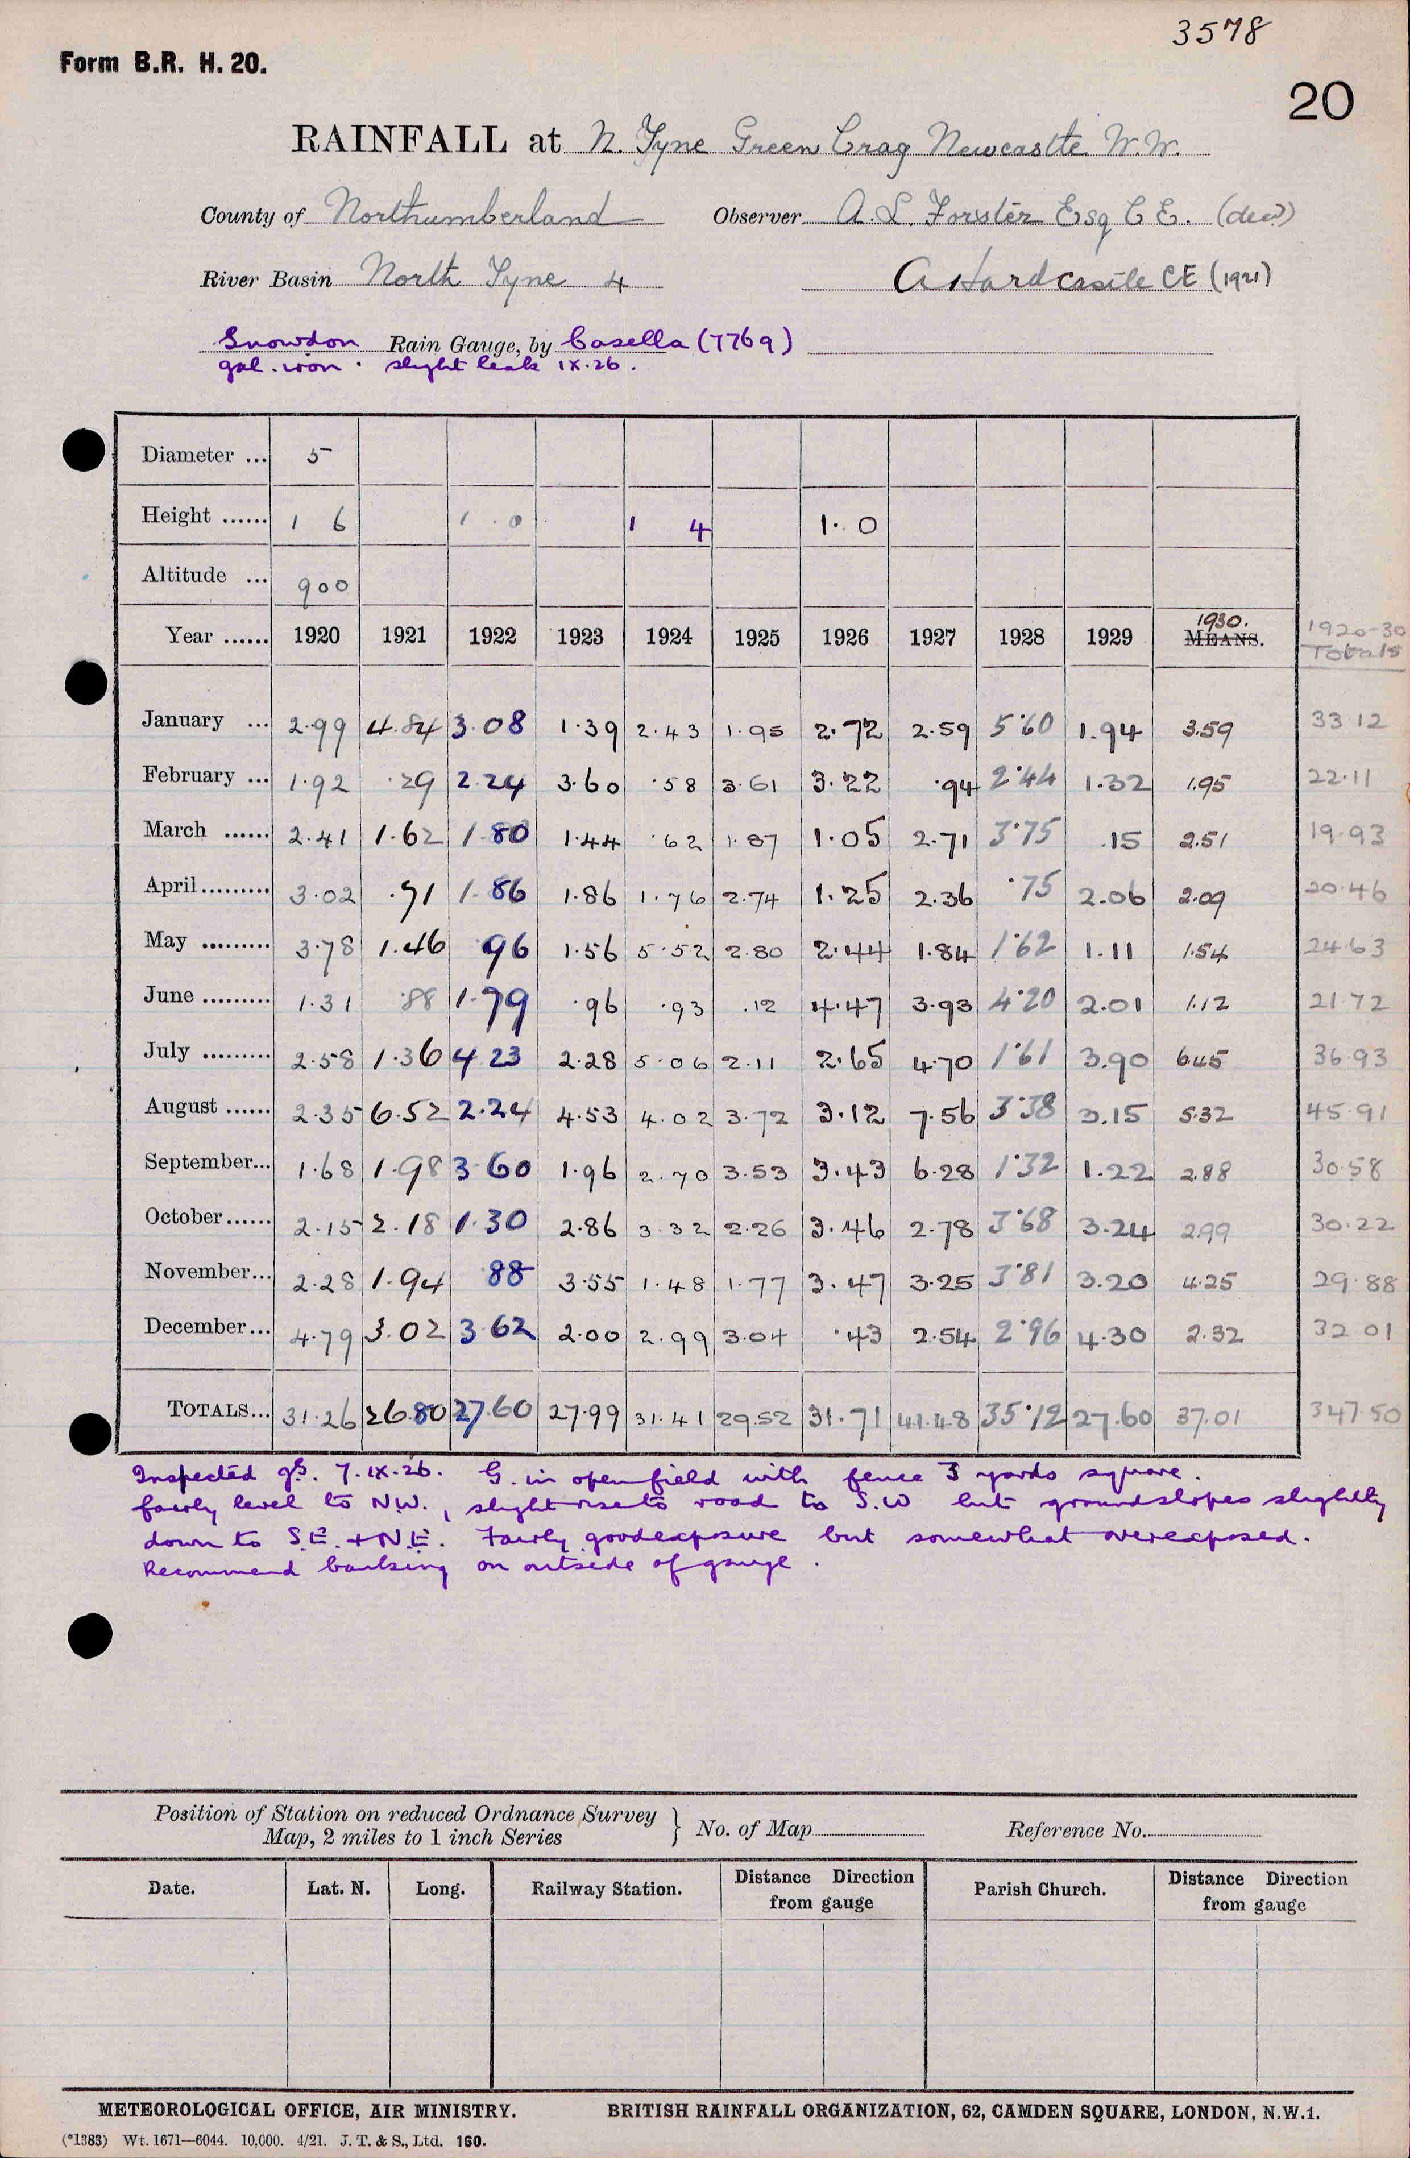 3578
Form B.R. H. 20.
20
RAINFALL at N. Tyne Green Crag Newcastle W.W.
County of Northumberland Observer A. L. Forster Esq C E. (decd)
River Basin North Tyne 4 A Hardcastle CE (1921)
Snowdon Rain Gauge, by Casella (7769)
gal. iron. slight leak IX.26.
Diameter ... 5
Height ...... 1 6 1 . 0 1 4 1. 0
Altitude ... 900
1930. 1920-30
Year ...... 1920 1921 1922 1923 1924 1925 1926 1927 1928 1929 MEANS. Totals
January ... 2.99 4.84 3.08 1.39 2.43 1.95 2.72 2.59 5.60 1.94 3.59 33.12
February ... 1.92 .29 2.24 3.60 .58 3.61 3.22 .94 2.44 1.32 1.95 22.11
March ...... 2.41 1.62 1.80 1.44 .62 1.87 1.05 2.71 3.75 .15 2.51 19.93
April ......... 3.02 .71 1.86 1.86 1.76 2.74 1.25 2.36 .75 2.06 2.09 20.46
May ......... 3.78 1.46 96 1.56 5.52 2.80 2.44 1.84 1.62 1.11 1.54 24.63
June ......... 1.31 .88 1.79 .96 .93 .12 4.47 3.93 4.20 2.01 1.12 21.72
July ......... 2.58 1.36 4 23 2.28 5.06 2.11 2.65 4.70 1.61 3.90 6.45 36.93
August ...... 2.35 6.52 2.24 4.53 4.02 3.72 3.12 7.56 3.38 3.15 5.32 45.91
September... 1.68 1.98 3 60 1.96 2.70 3.53 3.43 6.28 1.32 1.22 2.88 30.58
October ...... 2.15 2.18 1.30 2.86 3.32 2.26 3.46 2.78 3.68 3.24 2.99 30.22
November... 2.28 1.94 88 3.55 1.48 1.77 3.47 3.25 3.81 3.20 4.25 29.88
December... 4.79 3.02 3 62 2.00 2.99 3.04 .43 2.54 2.96 4.30 2.32 32.01
TOTALS... 31.26 26.80 27.60 27.99 31.41 29.52 31.71 41.48 35.12 27.60 37.01 347.50
Inspected 7.IX.26. G. in open field with fence 3 yards square.
fairly level to N.W., slight rise to road to S.W but ground slopes slightly
down to S.E. + N.E. Fairly good exposure but somewhat overexposed.
Recommend banking on outside of gauge.
Position of Station on reduced Ordnance Survey
Map, 2 miles to 1 inch Series } No. of Map Reference No.
Date. Lat. N. Long. Railway Station. Distance Direction from gauge Parish Church. Distance Direction from gauge
METEOROLOGICAL OFFICE, AIR MINISTRY. BRITISH RAINFALL ORGANIZATION, 62, CAMDEN SQUARE, LONDON, N.W.1.
(*1383) Wt. 1671—6044. 10,000. 4/21. J. T. & S., Ltd. 160.